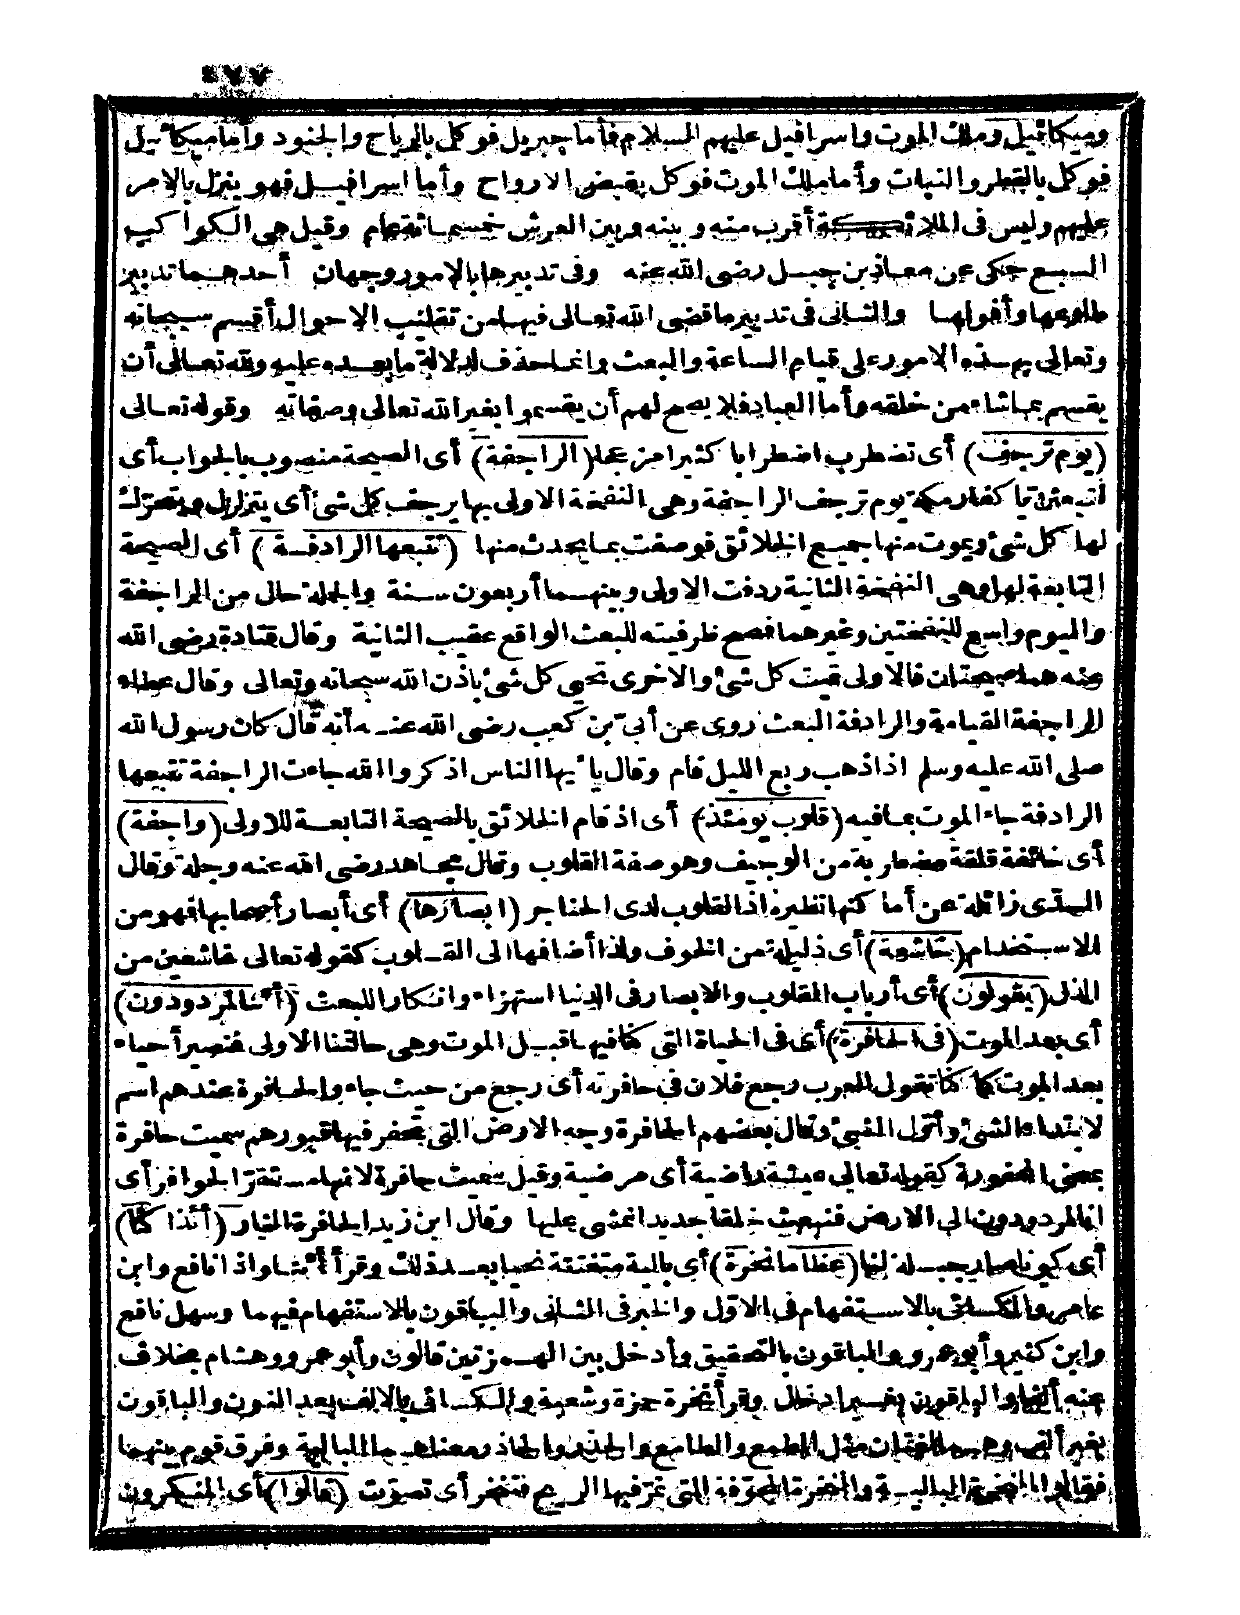 ٤٧٧
وميكائيل وملك الموت واسرافيل عليهم السلام فأما جبريل فوكل بالرياح والجنود وأما ميكائيل
فوكل بالقطر والنبات وأما ملك الموت فوكل بقبض الارواح وأما اسرافيل فهو ينزل بالامر
عليهم وليس فى الملائكة أقرب منه وبينه وبين العرش خمسمائة عام وقيل هى الكواكب
السبع حكى عن معاذ بن جبل رضى الله عنه وفى تدبيرها بالامور وجهان أحدهما تدبير
طلوعها وأفولها والثانى فى تدبير ما قضى الله تعالى فيها من تقليب الاحوال أقسم سبحانه
وتعالى بهذه الامور على قيام الساعة والبعث وانما حذف لدلالة ما بعده عليه ولله تعالى أن
يقسم بما شاء من خلقه وأما العباد فلا يصح لهم أن يقسموا بغير الله تعالى وصفاته وقوله تعالى
(يوم ترجف) أى تضطرب اضطرابا كثيرا مزعجا (الراجفة) أى الصيحة منصوب بالجواب أى
لتبعثن يا كفار مكة يوم ترجف الراجفة وهى النفخة الاولى بها يرجف كل شئ أى يتزلزل ويتحرك
لها كل شئ ويموت منها جميع الخلائق فوصفت بما يحدث منها (تتبعها الرادفة) أى الصيحة
التابعة لها وهى النفخة الثانية ردفت الاولى وبينهما أربعون سنة والجملة حال من الراجفة
واليوم واسع للنفختين وغيرهما فصح ظرفيته للبعث الواقع عقيب الثانية وقال قتادة رضى الله
عنه هما صيحتان فالاولى تميت كل شئ والاخرى تحيى كل شئ باذن الله سبحانه وتعالى وقال عطاء
الراجفة القيامة والرادفة البعث روى عن أبى بن كعب رضى الله عنه أنه قال كان رسول الله
صلى الله عليه وسلم اذا ذهب ربع الليل قام وقال يا أيها الناس اذكروا الله جاءت الراجفة تتبعها
الرادفة جاء الموت بما فيه (قلوب يومئذ) أى اذ قام الخلائق بالصيحة التابعة للاولى (واجفة)
أى خائفة قلقة مضطربة من الوجيف وهو صفة القلوب وقال مجاهد رضى الله عنه وجلة وقال
السدّى زائلة عن أماكنها نظيره اذ القلوب لدى الحناجر (ابصارها) أى أبصار أصحابها فهو من
الاستخدام (خاشعة) أى ذليلة من الخوف ولذا أضافها الى القلوب كقوله تعالى خاشعين من
الذل (يقولون) أى أرباب القلوب والابصار فى الدنيا استهزاء وانكارا للبعث (أئنا لمردودون)
أى بعد الموت (فى الحافرة) أى فى الحياة التى كنا فيها قبل الموت وهى حالتنا الاولى فنصير أحياء
بعد الموت كما كنا تقول العرب رجع فلان فى حافرته أى رجع من حيث جاء والحافرة عندهم اسم
لابتداء الشئ وأوّل الشئ وقال بعضهم الحافرة وجه الارض التى تحفر فيها قبورهم سميت حافرة
بمعنى المحفورة كقوله تعالى عيشة راضية أى مرضية وقيل سميت حافرة لانها مستقر الحوافر أى
انا لمردودون الى الارض فنبعث خلقا جديدا نمشى عليها وقال ابن زيد الحافرة النار (أئذا كنا)
أى كونا صار جبلة لنا (عظاما نخرة) أى بالية متفتتة نحيا بعد ذلك وقرأ أئنا واذا نافع وابن
عامر والكسائى بالاستفهام فى الاوّل والخبر فى الثانى والباقون بالاستفهام فيهما وسهل نافع
وابن كثير وأبو عمرو والباقون بالتحقيق وأدخل بين الهمزتين قالون وأبو عمرو وهشام بخلاف
عنه ألفا والباقون بغير ادخال وقرأ نخرة حمزة وشعبة والكسائى بالالف بعد النون والباقون
بغير ألف وهما لغتان مثل الطمع والطامع والحذر والحاذر معناهما البالية وفرق قوم بينهما
فقالوا النخرة البالية والناخرة المجوّفة التى تمرّ فيها الريح فتنخر أى تصوّت (قالوا) أى المنكرون